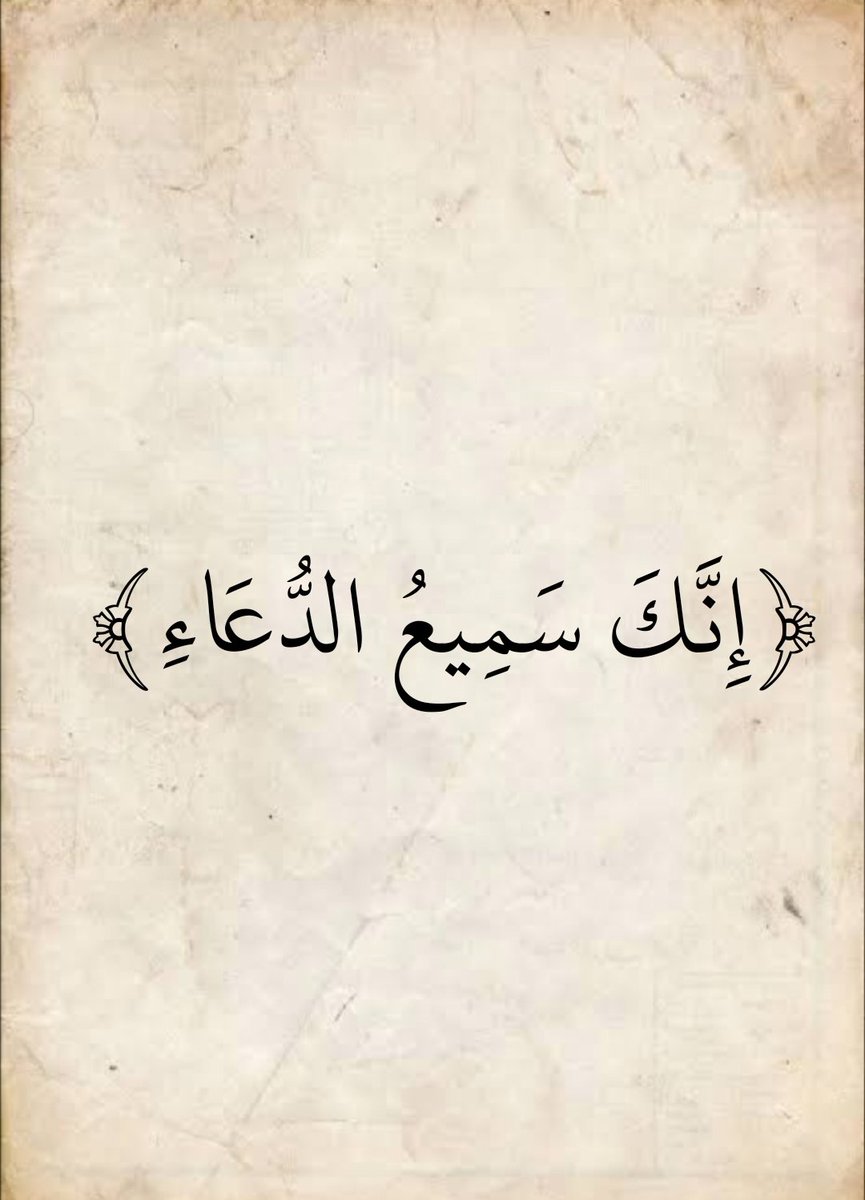 ﴿إِنَّكَ سَمِيعُ الدُّعَاءِ﴾